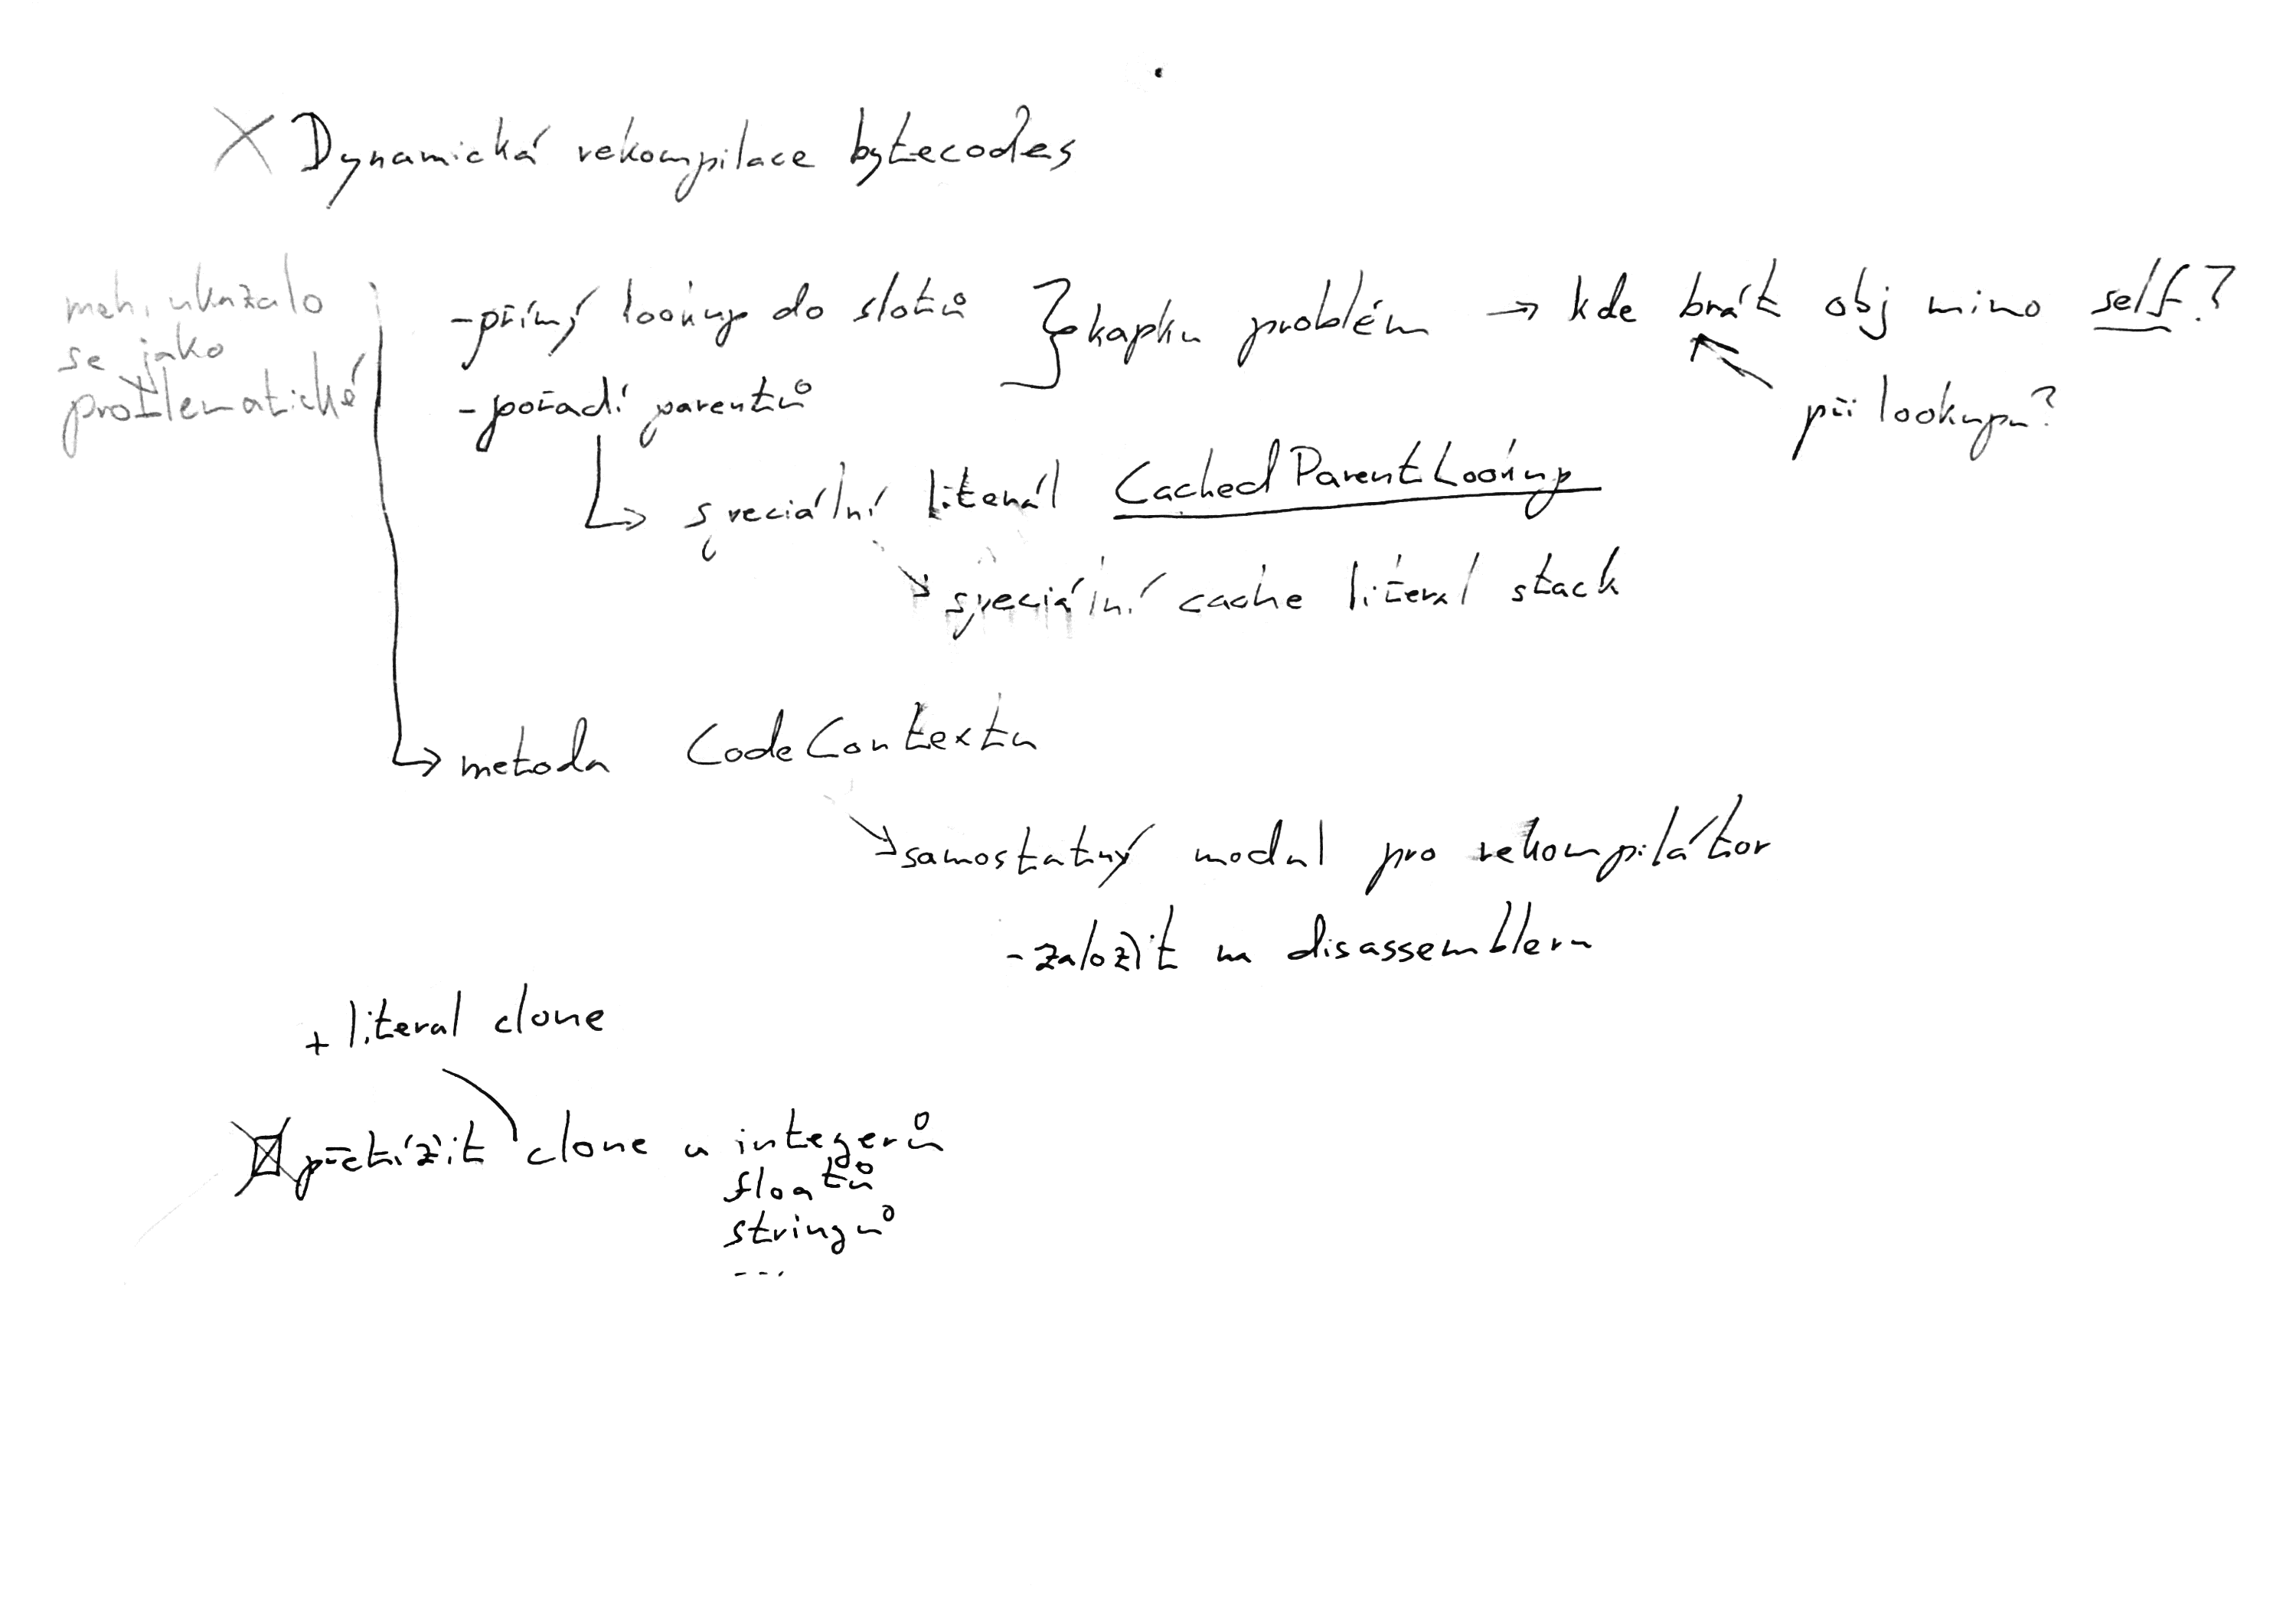 X Dynamická rekompilace bytecodes
meh, ukázalo
se jako
problematické
- přímý lookup do slotů } kapku problém → kde brát obj mimo self?
- pořadí parentů
při lookupu?
↳ speciální literál CachedParentLookup
↘ speciální cache literal stack
↳ metoda CodeContextu
↘ samostatný modul pro rekompilátor
- založit na disassembleru
+ literal clone
přetížit clone u integerů
floatů
stringů
...